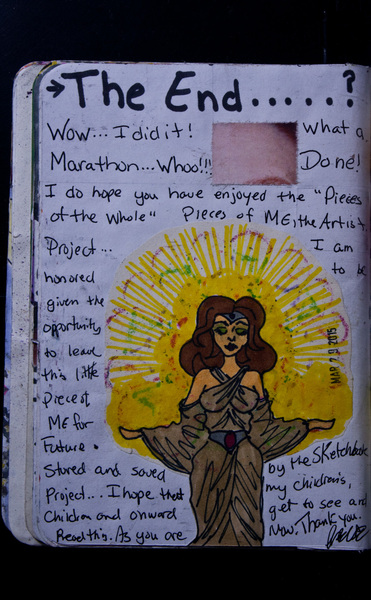 →The End.....?
Wow... I did it! What a
Marathon... Whoo!!! Done!
I do hope you have enjoyed the "Pieces
of the Whole" Pieces of ME, the Artist
Project... I am
honored to be
given the
opportunity
to leave
this little
Piece of
ME for
Future.
MAR 29 2015
Stored and saved by the Sketchbook
Project... I hope that my children's,
Children and onward get to see and
Read this. As you are Now. Thank you.